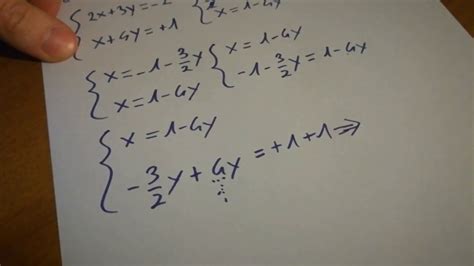 2x+3y=-2
x+4y=+1 x=1-4y
x=-1-3/2y x=1-4y
x=1-4y -1-3/2y=1-4y
x=1-4y
-3/2y+4y=+1+1⇒